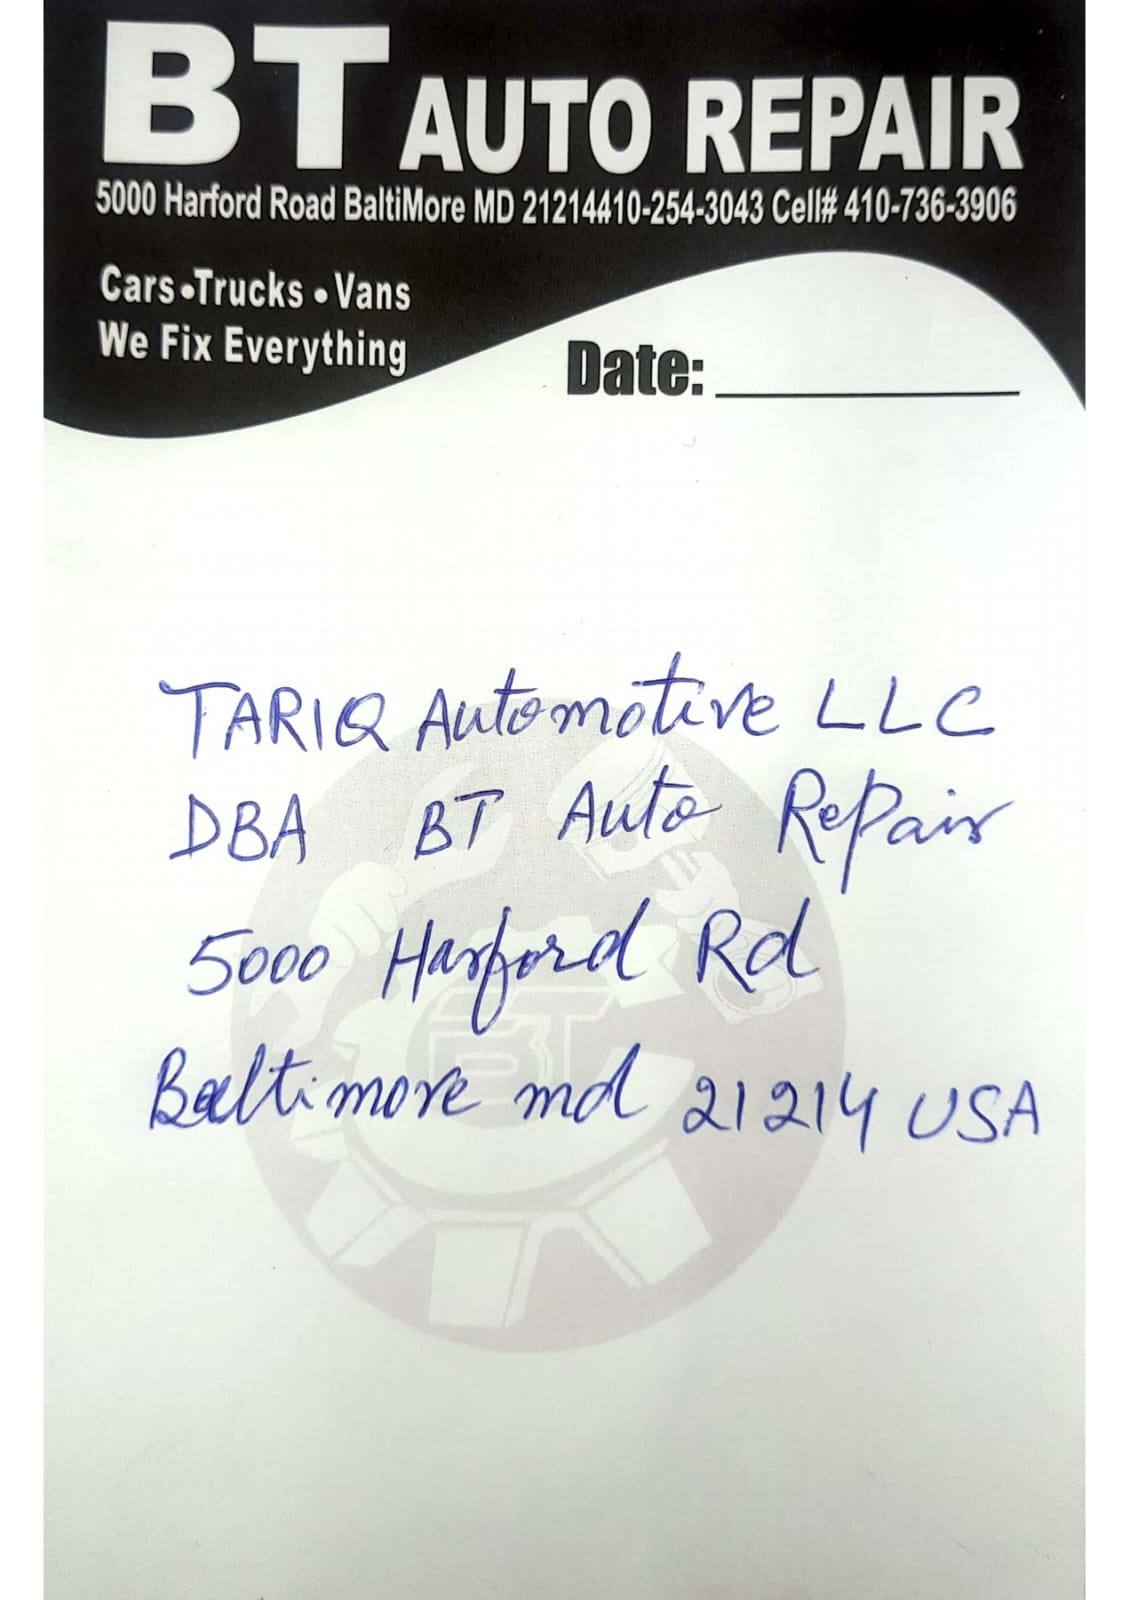 BT AUTO REPAIR
5000 Harford Road BaltiMore MD 21214410-254-3043 Cell# 410-736-3906
Cars•Trucks • Vans
We Fix Everything
Date:
TARIQ Automotive LLC
DBA BT Auto RePair
5000 Harford Rd
Baltimore md 21214 USA
BT